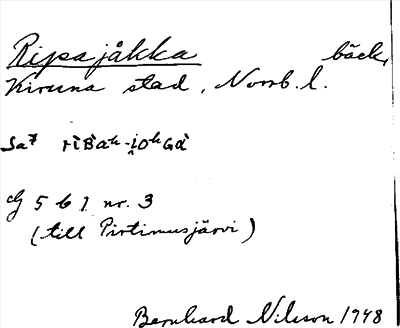 Ripajåkka bäck,
Kiruna stad, Norrb. l.
Sa⁷ rìB̀aʰ-i̭oʰGà
G 5 6 1 nr. 3
(till Pirtimusjärvi)
Bernhard Nilsson 1948